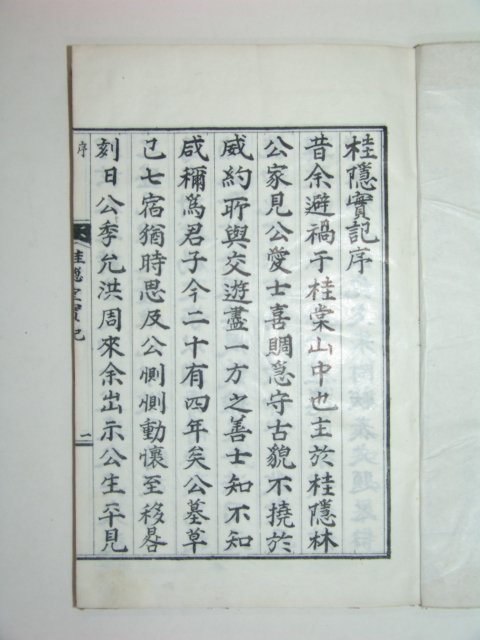 桂隱實記序
昔余避禍于桂棠山中也主於桂隱林
公家見公愛士喜賙急守古貌不撓於
威約所與交遊盡一方之善士知不知
咸稱爲君子今二十有四年矣公墓草
已七宿猶時思及公惻惻動懷至移晷
刻日公季允洪周來余出示公生平見
序
桂隱公實記
一